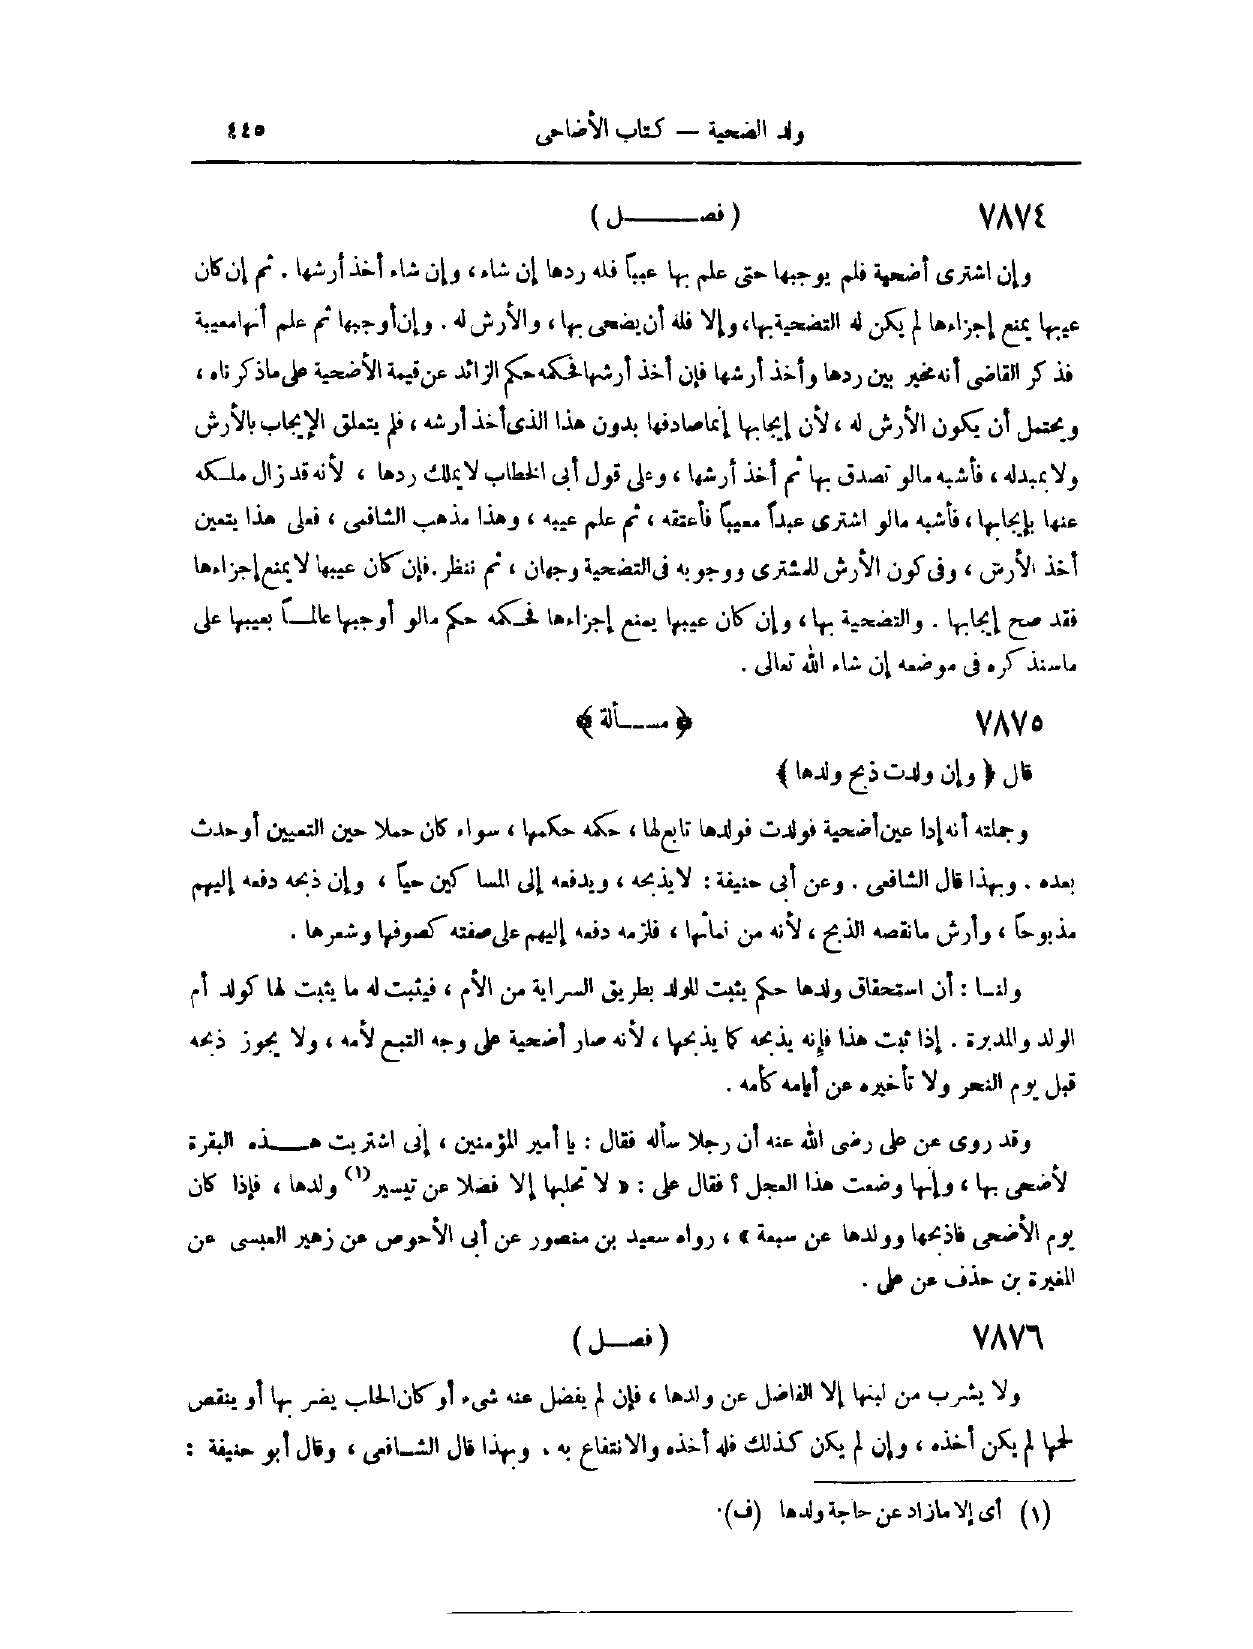 ولد الضحية — كتاب الأضاحى ٤٤٥
٧٨٧٤ ( فصـــــل )
وإن اشترى أضحية فلم يوجبها حتى علم بها عيباً فله ردها إن شاء ، وإن شاء أخذ أرشها . ثم إن كان
عيبها يمنع إجزاءها لم يكن له التضحية بها، وإلا فله أن يضحى بها ، والأرش له . وإن أوجبها ثم علم أنها معيبة
فذكر القاضى أنه مخير بين ردها وأخذ أرشها فإن أخذ أرشها فحكمه حكم الزائد عن قيمة الأضحية على ماذكرناه ،
ويحتمل أن يكون الأرش له ، لأن إيجابها إنما صادفها بدون هذا الذى أخذ أرشه ، فلم يتعلق الإيجاب بالأرش
ولا بمبدله ، فأشبه مالو تصدق بها ثم أخذ أرشها ، وعلى قول أبى الخطاب لا يملك ردها ، لأنه قد زال ملـكه
عنها بإيجابها ، فأشبه مالو اشترى عبداً معيباً فأعتقه ، ثم علم عيبه ، وهذا مذهب الشافعى ، فعلى هذا يتعين
أخذ الأرش ، وفى كون الأرش للمشترى ووجوبه فى التضحية وجهان ، ثم ننظر .فإن كان عيبها لا يمنع إجزاءها
فقد صح إيجابها . والتضحية بها ، وإن كان عيبها يمنع إجزاءها فحـكمه حكم مالو أوجبها عالمـاً بعيبها على
ماسنذكره فى موضعه إن شاء الله تعالى .
٧٨٧٥ ﴿ مســـألة ﴾
قال ﴿ وإن ولدت ذبح ولدها ﴾
وجملته أنه إدا عين أضحية فولدت فولدها تابع لها ، حكمه حكمها ، سواء كان حملا حين التعيين أو حدث
بعده . وبهذا قال الشافعى . وعن أبى حنيفة : لا يذبحه ، ويدفعه إلى المساكين حياً ، وإن ذبحه دفعه إليهم
مذبوحاً ، وأرش مانقصه الذبح ، لأنه من نمائها ، فلزمه دفعه إليهم على صفته كصوفها وشعرها .
ولنـا : أن استحقاق ولدها حكم يثبت للولد بطريق السراية من الأم ، فيثبت له ما يثبت لها كولد أم
الولد والمدبرة . إذا ثبت هذا فإنه يذبحه كما يذبحها ، لأنه صار أضحية على وجه التبع لأمه ، ولا يجوز ذبحه
قبل يوم النحر ولا تأخيره عن أيامه كأمه .
وقد روى عن على رضى الله عنه أن رجلا سأله فقال : يا أمير المؤمنين ، إنى اشتريت هـــذه البقرة
لأضحى بها ، وإنها وضعت هذا العجل ؟ فقال على : « لا تحلبها إلا فضلا عن تيسير(١) ولدها ، فإذا كان
يوم الأضحى فاذبحها وولدها عن سبعة » ، رواه سعيد بن منصور عن أبى الأحوص عن زهير العبسى عن
المغيرة بن حذف عن على .
٧٨٧٦ ( فصـــل )
ولا يشرب من لبنها إلا الفاضل عن ولدها ، فإن لم يفضل عنه شىء أو كان الحلب يضر بها أو ينقص
لحمها لم يكن أخذه ، وإن لم يكن كذلك فله أخذه والانتفاع به . وبهذا قال الشـافعى ، وقال أبو حنيفة :
(١) أى إلا مازاد عن حاجة ولدها (ف).